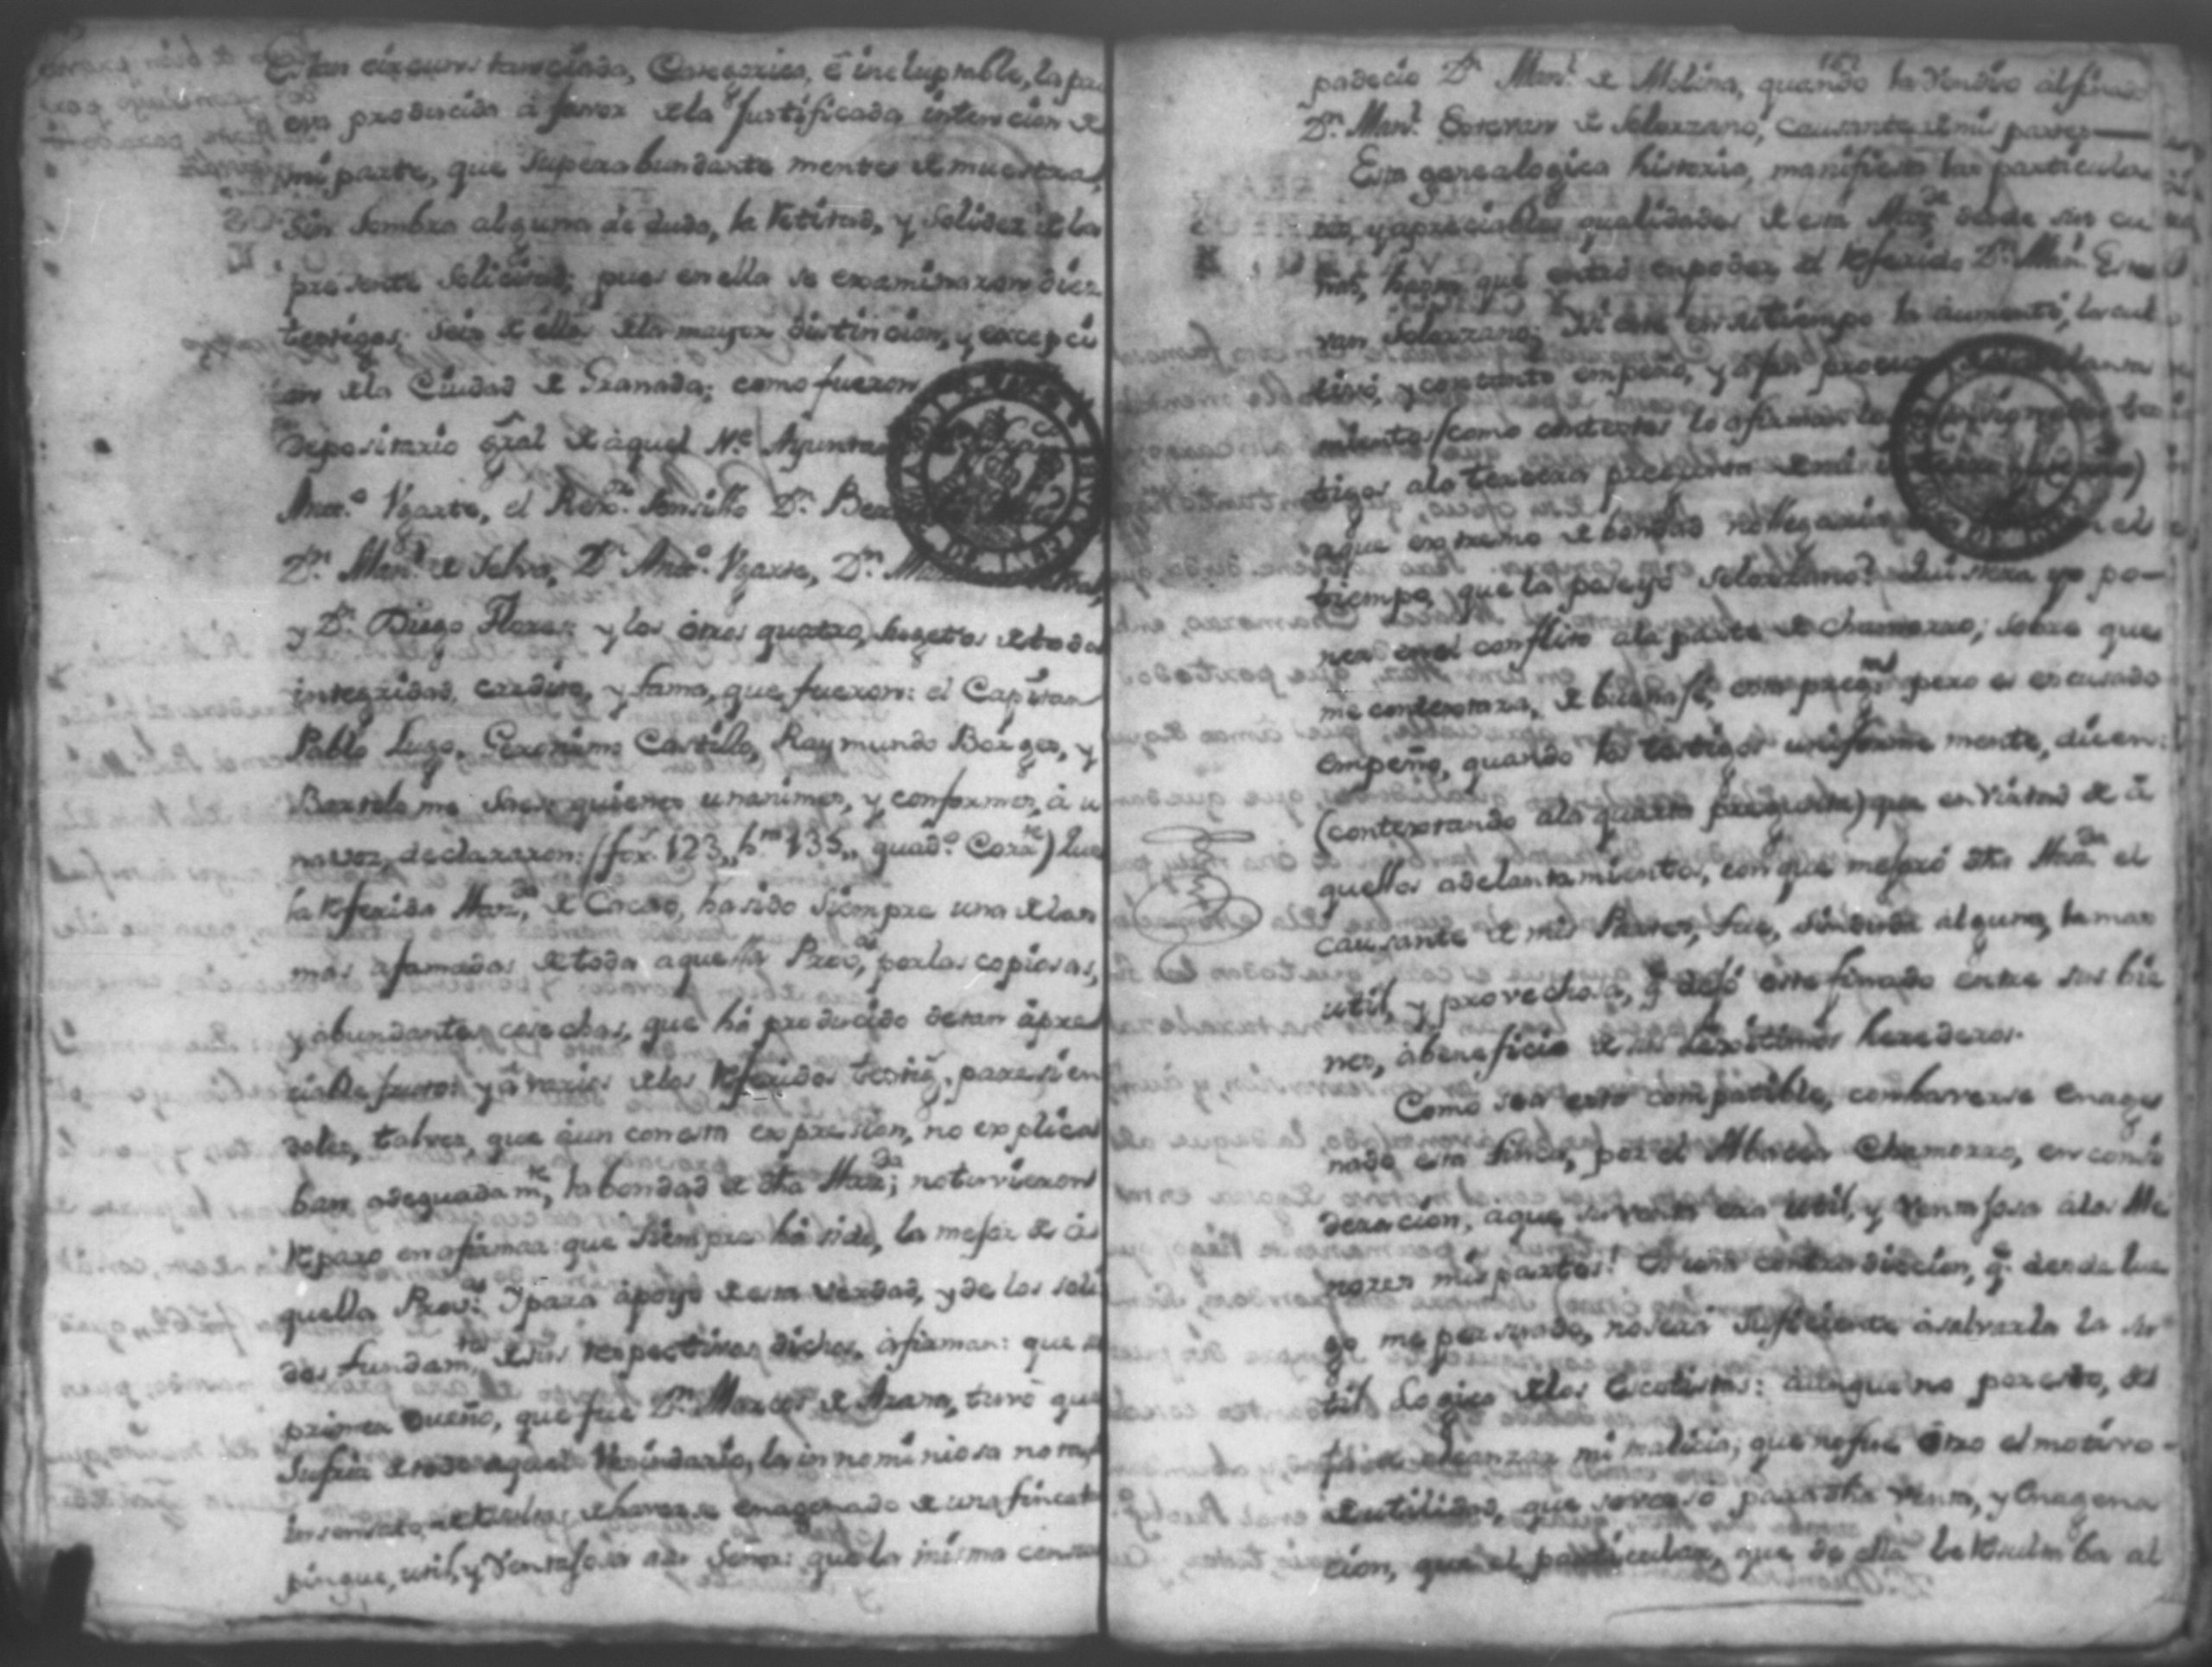 Es tan circunstanciada, Categorica, é ineluptable, la pru
eva producida á favor de la Justificada intencion de
mi parte, que superabundante mente demuestra,
sin sombra alguna de duda, la Vetirad, y solidez de la
presente solicitud; pues en ella se examinaron diez
testigos; seis de ellos de la mayor distincion, y excepci
on de la Ciudad de Granada; como fueron
Depositario Gral de aquel Ne. Ayunta
Anto. Vgarte, el Rexor. Sensillo Dn. Ber
Dn. Manl. de Selva, Dn. Anto. Vgarte, Dn.
y Dn. Diego Flores; y los otros quatro, sugetos de toda
integridad, credito, y fama, que fueron: el Capitan
Pablo Lugo, Geronimo Castillo, Raymundo Borges, y
Bartolome quienes unanimes, y conformes, á u
na voz, declararon: (fox. 123,, hta 135,, quado. Corrte) que
la Referida Hazda, de Cacao, ha sido siempre una de las
mas afamadas de toda aquella Prova, por las copiosas,
y abundantes cosechas, que há producido de tan apre
ciable fruto: y á varios de los Referidos testigs. parecien
doles, talvez, que aun con esta expresion, no explica
ban adequadamte, la bondad de dha Hazda; no tuvieron
Reparo en afirmar: que siempre há sido, la mejor de a
quella Prova. Y para apoyo de esta verdad, y de los soli
dos fundamtos, de sus respectivos dichos, afirman: que su
primer Dueño, que fue Dn. Marcos de Arana, tuvo que
sufrir de todo aquel Vecindario, la innominiosa nota,
insensato, de haverse enagenado de una finca tan
pingue, util, y Ventajosa a su Señor: que la misma censura
padecio Dn. Manl. de Molina, quando la Vendio al finado
Dn. Manl. Estevan de Solorzano, causante de mis partes
Esta genealogica historia, manifiesta las particula
res, y apreciables qualidades de esta Hazda desde su cu
na, hasta que entró en poder, del Referido Dn. Manl. Este
van Solorzano; Si este en su tiempo la aumentó, la cul
tivó, y con tanto empeño, y afan procuró sus adelanta
mientos (como contextes lo afirman los tes
tigos a la tercera pregunta de mi
a que extremo de bondad no llegaria en el
tiempo, que la poseyó Solorzano? Quisiera yo po-
ner en el conflito a la parte de Chamorro; sobre que
me contestara, de buena fé, esta pregta: pero es escusado
empeño, quando los testigos uniforme mente, dicen:
(contestando a la quarta pregunta) que en Virtud de a
quellos adelantamientos, con que mejoró dha Hazda el
causante de mis Partes, fue, sin duda alguna, la mas
util, y provechosa, q. dejó este finado entre sus bie
nes, á beneficio de sus Lexitimos herederos.
Como sea esto compatible, con haverse enage
nado esta finca, por el Albacea Chamorro, en consi
deracion, a que su venta era util, y Ventajosa á los Me
nores mis partes! Es una contradiccion, q. desde lue
go me persuado, no será suficiente á salvarla la su-
til Logica de los Escotistas: aunque no por esto, de
ja de alcanzar mi malicia; que no fue otro el motivo-
de utilidad, que se versó para dha Venta, y Enagena
cion, que el particular, que de ella le Resultaba al